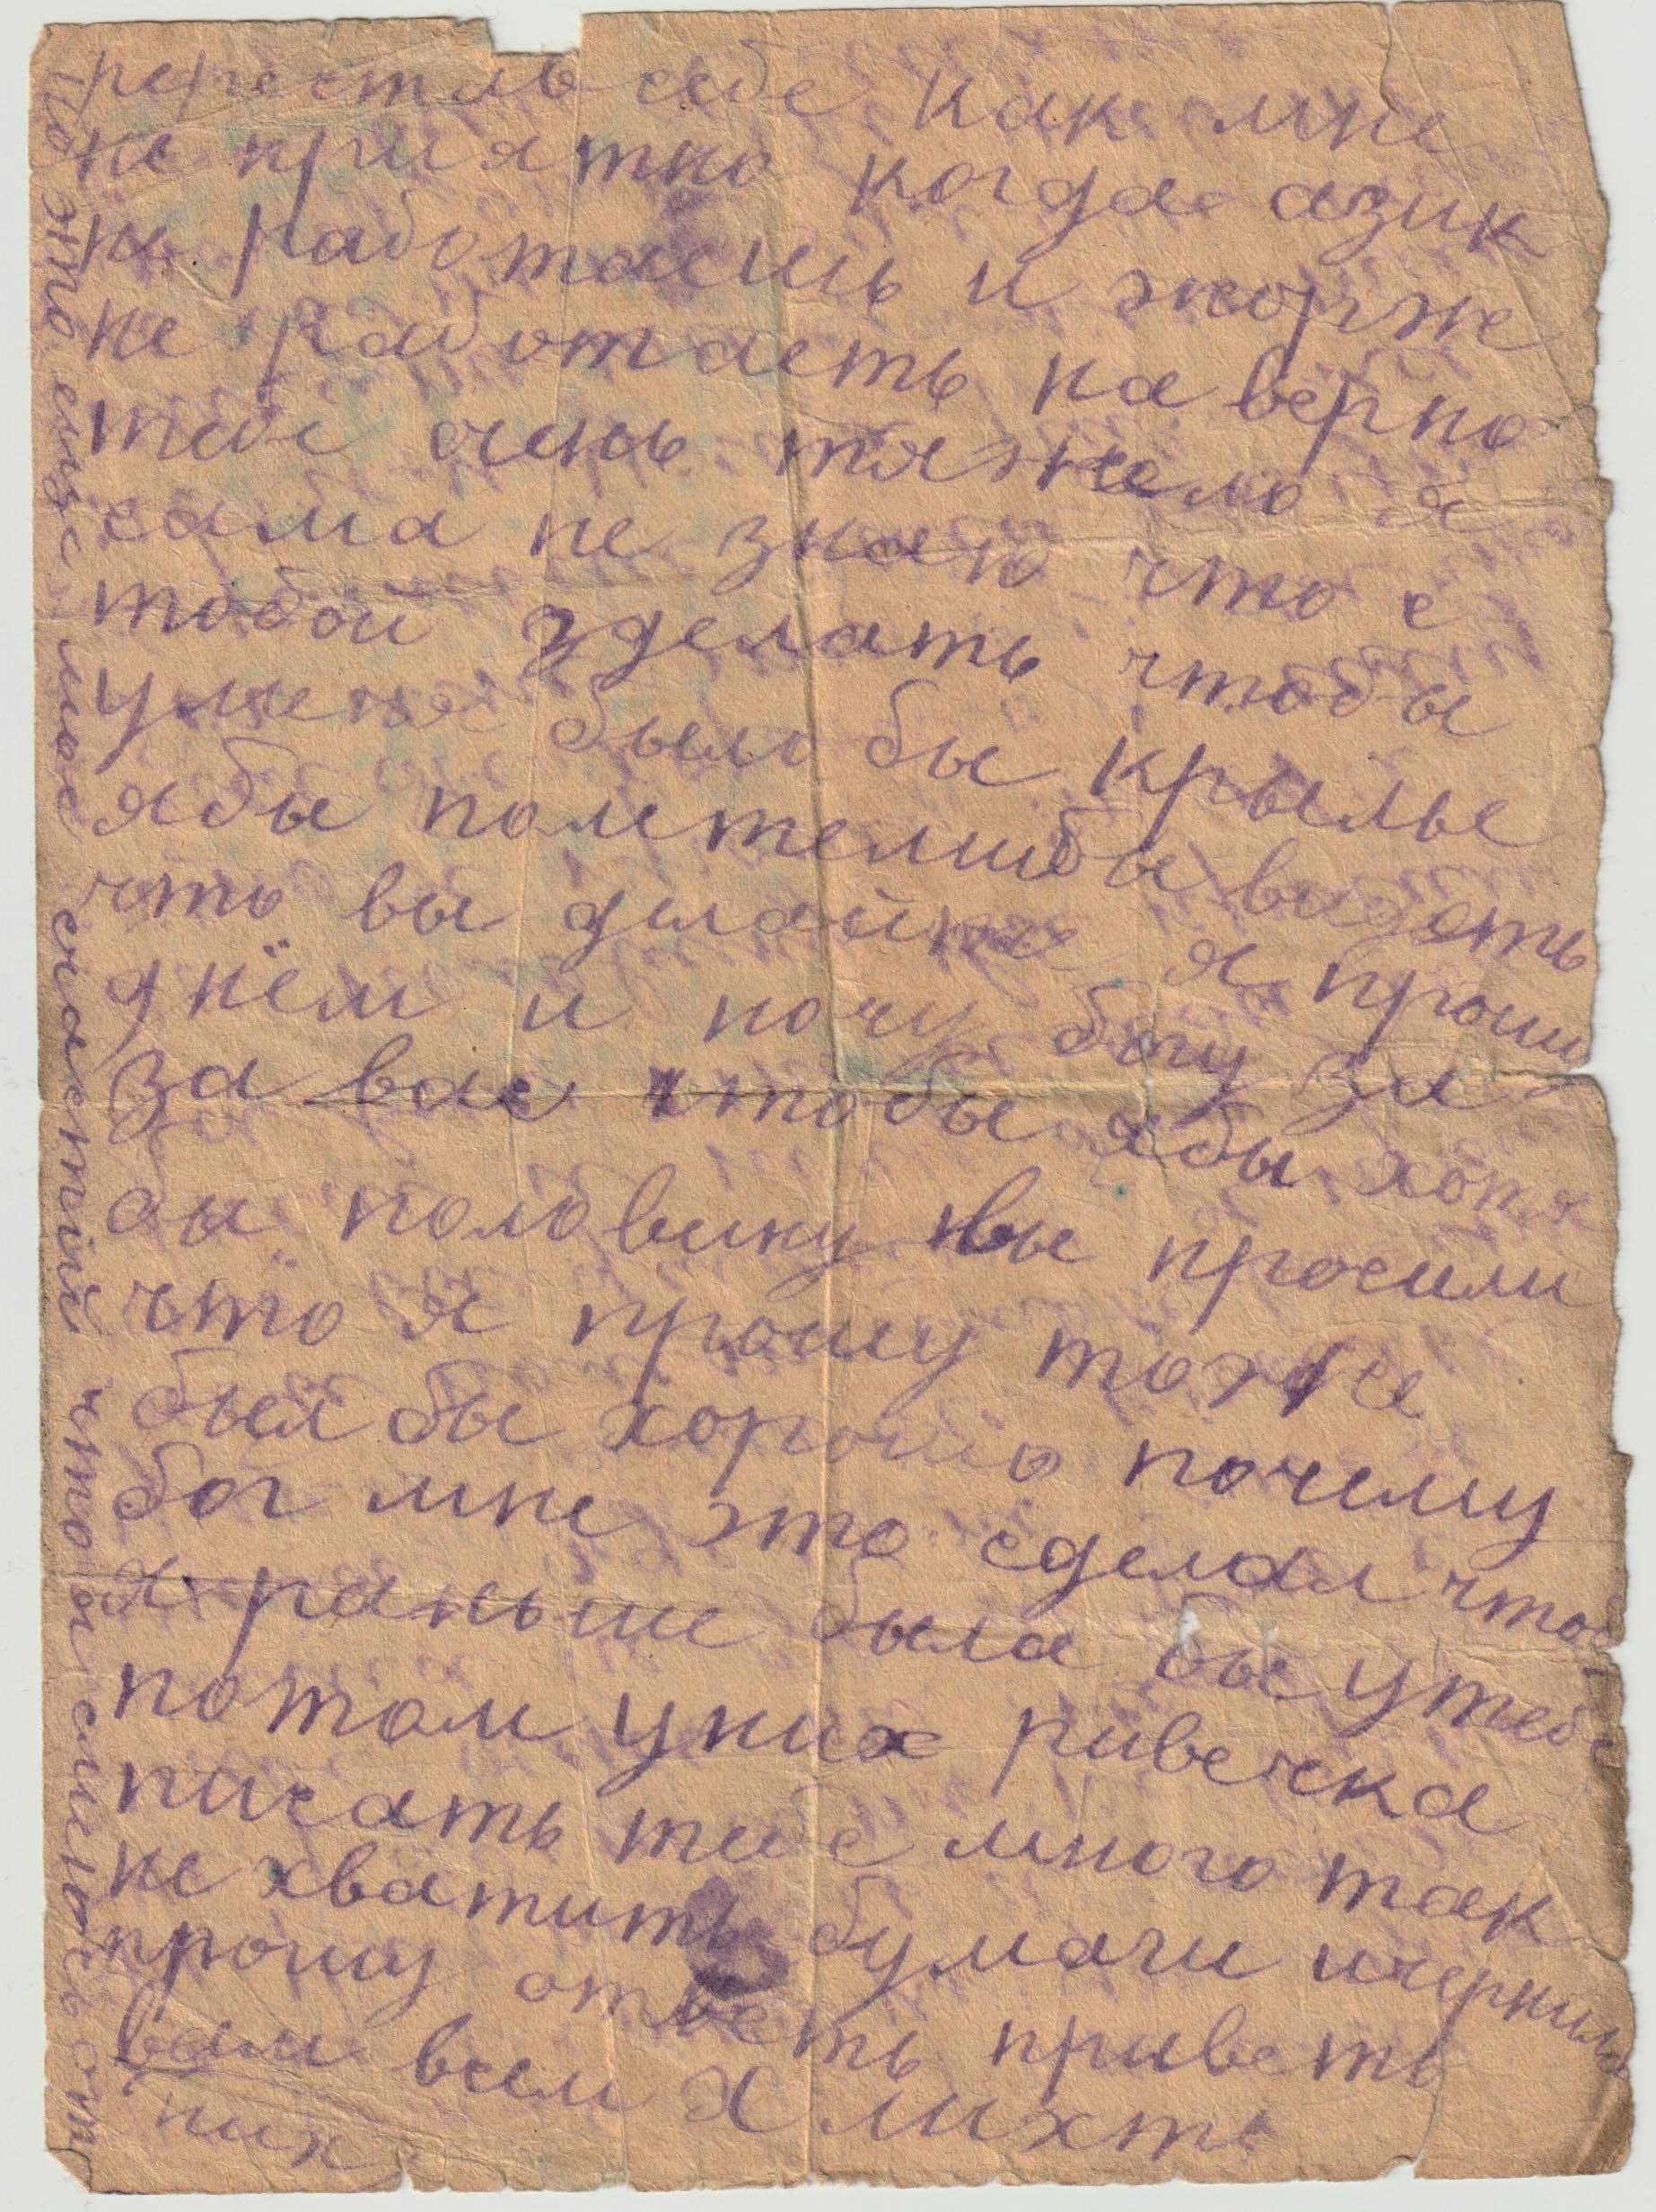 себе как мне
не приятно когда азик
не работаешь и жорже
не работаеть на верно
тебе очень тяжело я
сама не знаю что с
тобой зделать чтобы
умене было бы крылье
ябы полетела бы видеть
что вы делайте я прошу
днём и ночу богу за
за вас чтобы ябы хотя
бы половину вы просили
что я прошу тоже
был бы хорошо почему
бог мне это сделал чтоб
я раньше была бы утебе
потом уних ривечка
писать тебе много так
не хватить бумаги ичернил
прошу ответь приветь
вам всем
это ещё моё счастий что я от них